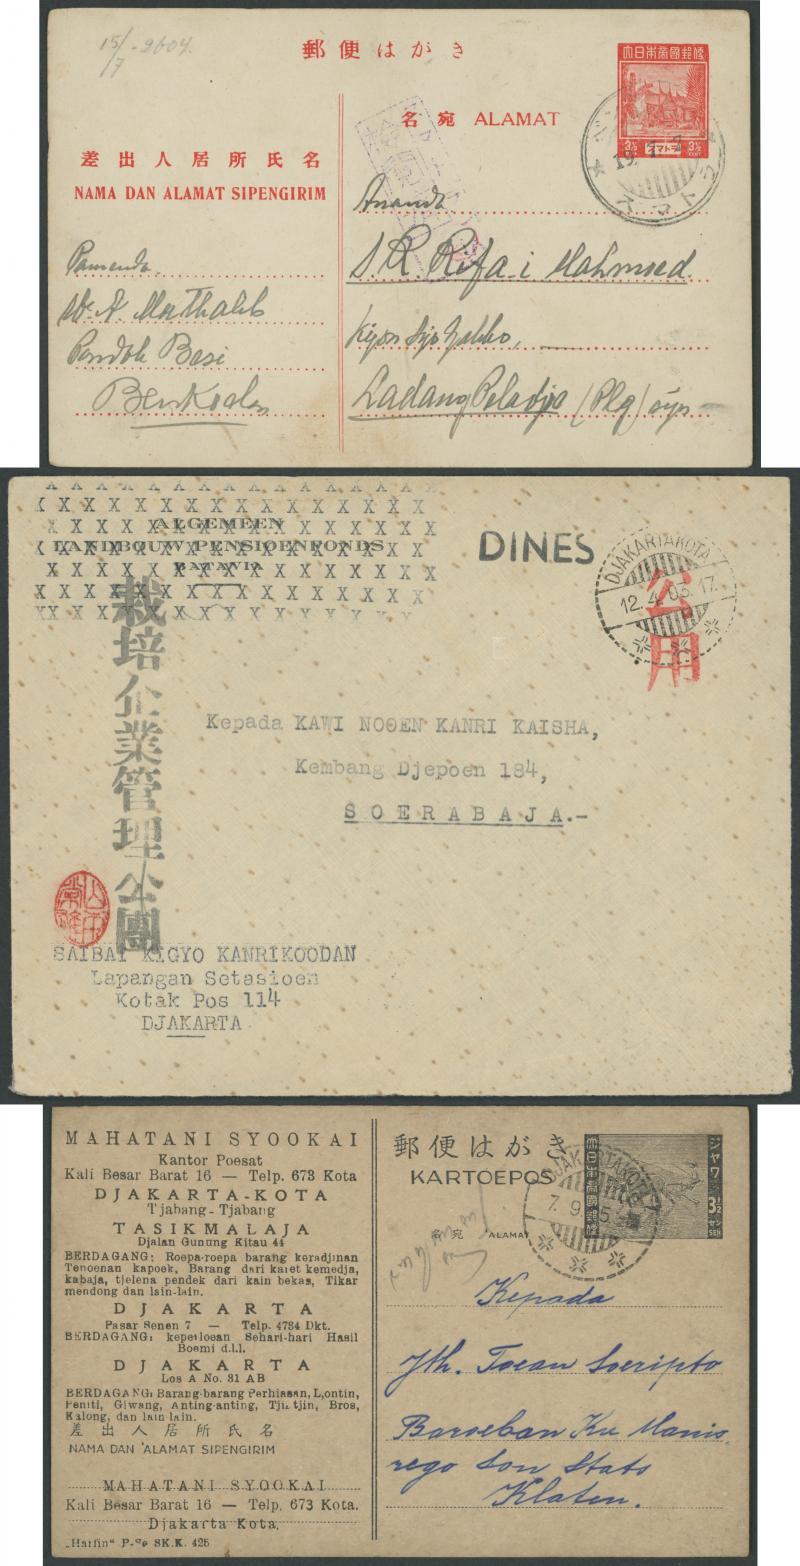 15/7 - 2604.
郵便はがき
大日本帝國郵便
3½ スマトラ 3½
名宛 ALAMAT
差出人居所氏名
NAMA DAN ALAMAT SIPENGIRIM
スマトラ
Ananda
S. R. Rifa-i Mahmoed.
Pamenda.
Pondok Besi
Benkoelen
Ladang Peladjo (Plg)
X X X X X X X X X X X X X X
ALGEMEEN
LANDBOUW-PENSIOENFONDS
BATAVIA
DINES
DJAKARTAKOTA
12.4.03.17
公用
栽培企業管理公團
Kepada KAWI NOOEN KANRI KAISHA,
Kembang Djepoen 184,
SOERABAJA.-
SAIBAI KIGYO KANRIKOODAN
Lapangan Setasioen
Kotak Pos 114
DJAKARTA
MAHATANI SYOOKAI
Kantor Poesat
Kali Besar Barat 16 — Telp. 673 Kota
DJAKARTA-KOTA
Tjabang-Tjabang
TASIKMALAJA
Djalan Gunung Kitau 44
BERDAGANG: Roepa-roepa barang keradjinan
Tenoenan kapoek, Barang dari karet kemedja,
kabaja, tjelena pendek dari kain bekas, Tikar
mendong dan lain-lain.
DJAKARTA
Pasar Senen 7 — Telp. 4734 Dkt.
BERDAGANG: keperloean Sehari-hari Hasil
Boemi d.l.l.
DJAKARTA
Los A No. 81 AB
BERDAGANG: Barang-barang Perhiasan, Liontin,
Peniti, Giwang, Anting-anting, Tjintjin, Bros,
Kalong, dan lain-lain.
差出人居所氏名
NAMA DAN ALAMAT SIPENGIRIM
MAHATANI SYOOKAI
Kali Besar Barat 16 — Telp. 673 Kota.
Djakarta Kota.
SK.K. 425
郵便はがき
KARTOEPOS
大日本帝國郵便
ジャワ
3½
セン
SEN
DJAKARTAKOTA
名宛 ALAMAT
Kepada
Jth. Toean Soeripto
Klaten.